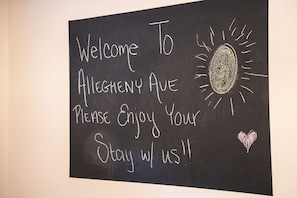 Welcome To
Allegheny Ave
Please Enjoy Your
Stay w/ us!!